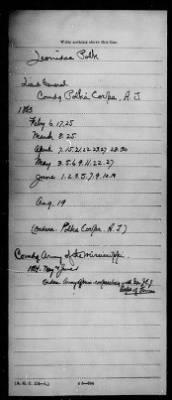 Write nothing above this line.
Leonidas Polk
Lieut General
Comdg Polk's Corps, A. T.
1863
Feby 6. 17. 25
March 3. 25
April 7. 15. 21. 22. 23. 27. 28. 30
May 3. 5. 6. 9. 11. 22. 27
June 1. 2. 3. 5. 7. 9. 10. 19
Aug. 19
(Orders Polk's Corps. A. T.)
Comdg Army of the Mississippi
1864. May & June
Orders Army